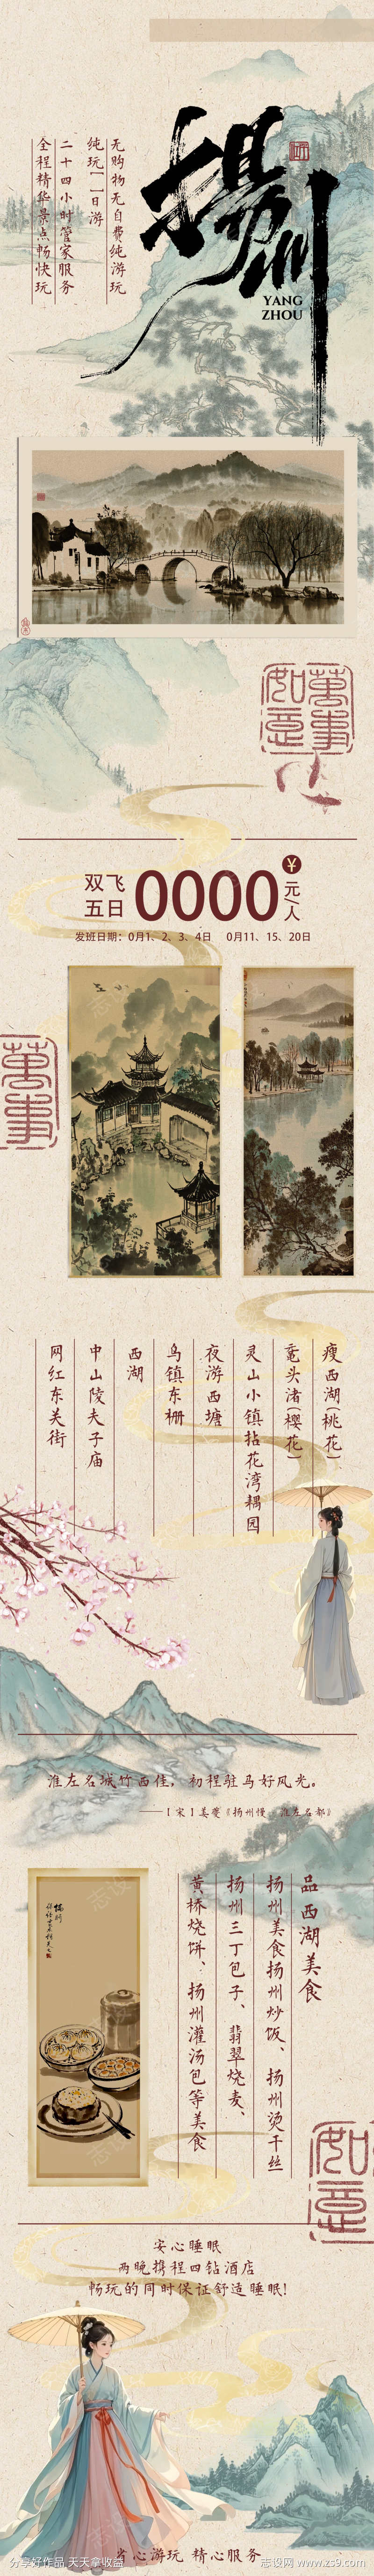 揚州
YANG
ZHOU
无购物无自费纯游玩
纯玩一一日游
二十四小时管家服务
全程精华景点畅快玩
萬事
如意
双飞
五日
0000
¥
元/人
发班日期：0月1、2、3、4日 0月11、15、20日
萬事
瘦西湖(桃花)
鼋头渚(樱花)
灵山小镇拈花湾耦园
夜游西塘
乌镇东栅
西湖
中山陵夫子庙
网红东关街
淮左名城竹西佳，初程驻马好风光。
——【宋】姜夔《扬州慢·淮左名都》
品西湖美食
扬州美食扬州炒饭、扬州烫干丝
扬州三丁包子、翡翠烧麦、
黄桥烧饼、扬州灌汤包等美食
如意
安心睡眠
两晚携程四钻酒店
畅玩的同时保证舒适睡眠!
省心游玩 精心服务
分享好作品 天天拿收益
志设网 www.zs9.com